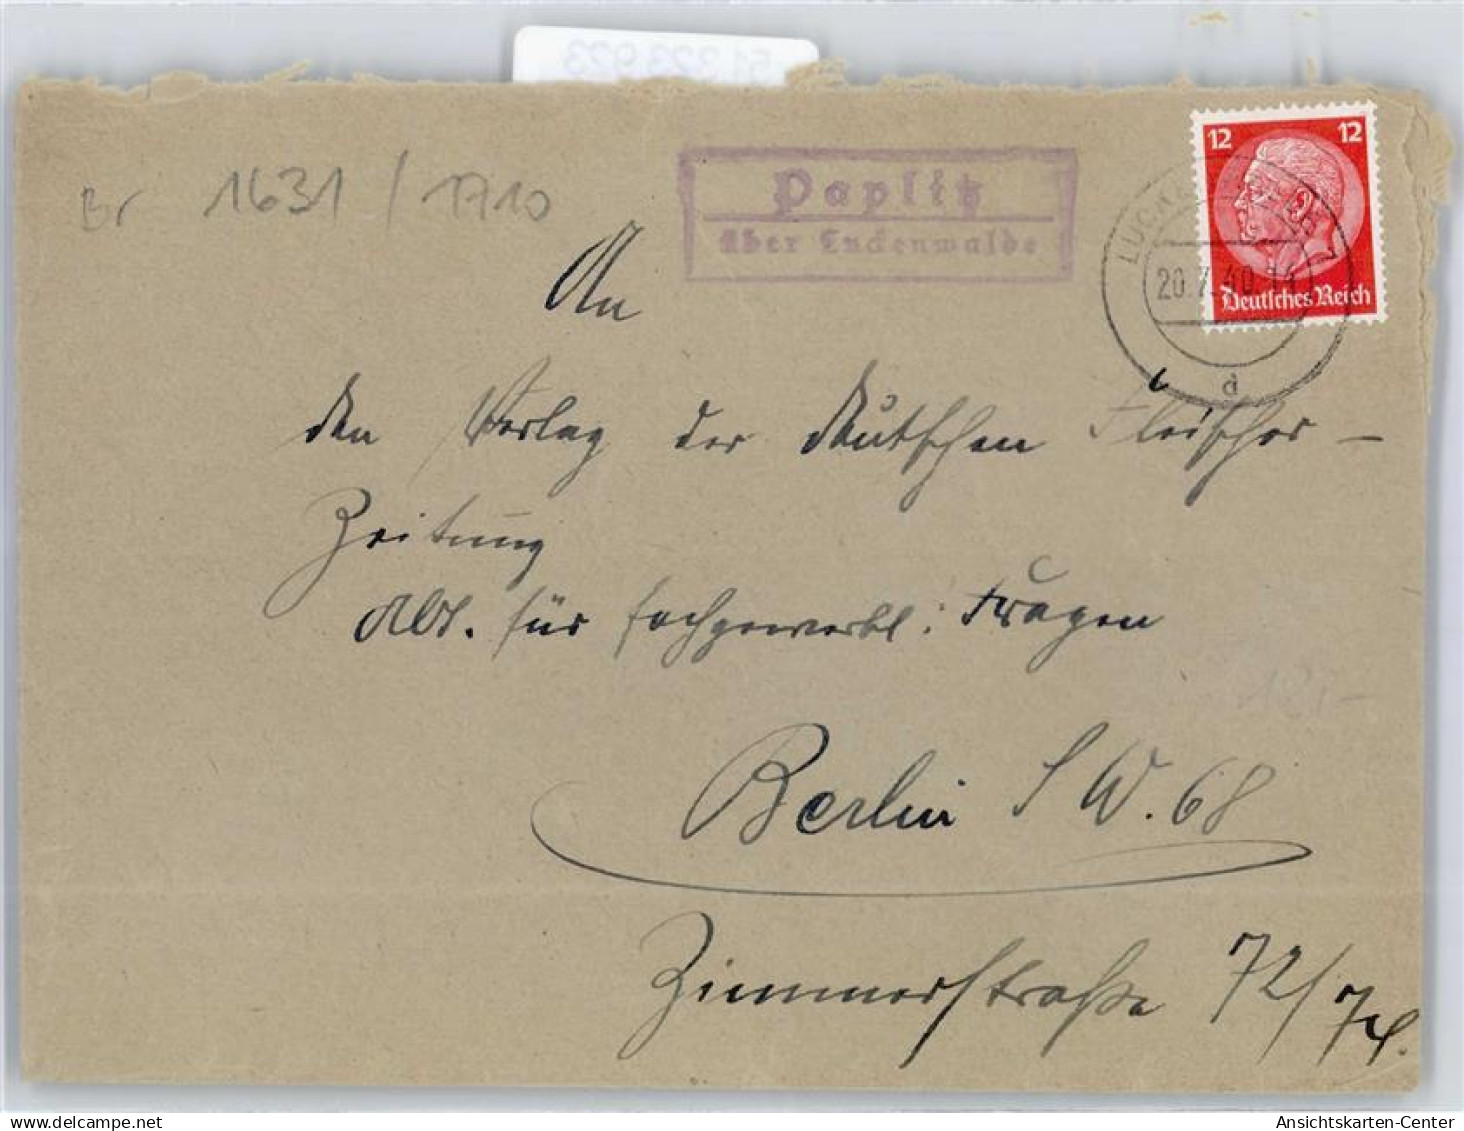 51 323 923
Br 1631 / 1710
Paplitz
über Luckenwalde
12 12
Deutsches Reich
20.7.40.
d
An
den Verlag der deutschen Fleischer-
Zeitung
Abt. für fachgewerbl. Fragen
Berlin SW. 68
Zimmerstraße 72/74.
Ansichtskarten-Center